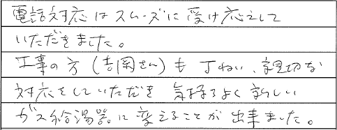 電話対応はスムーズに受け応えして
いただきました。
工事の方(吉岡さん)も丁ねい、親切な
対応をしていただき気持ちよく新しい
ガス給湯器に変えることが出来ました。